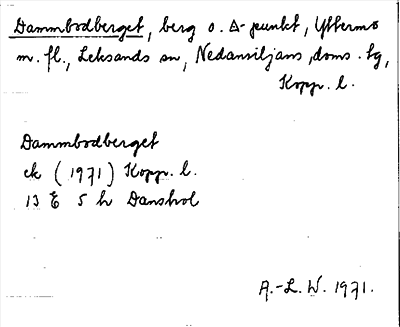 Dammbodberget, berg o. Δ-punkt, Yttermo
m. fl., Leksands sn, Nedansiljans doms. tg,
Kopp. l.
Dammbodberget
ek (1971) Kopp. l.
13 E 5 h Danshol
A.-L. W. 1971.